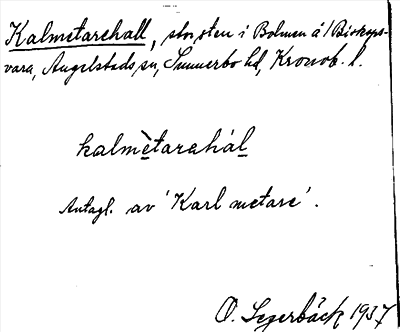 Kalmetarehall, stor sten i Bolmen å l Biskops-
vara, Angelstads sn, Sunnerbo hd, Kronob. l.
kalmètarahál
Antagl. av 'Karl metare'.
O. Segerbäck 1937